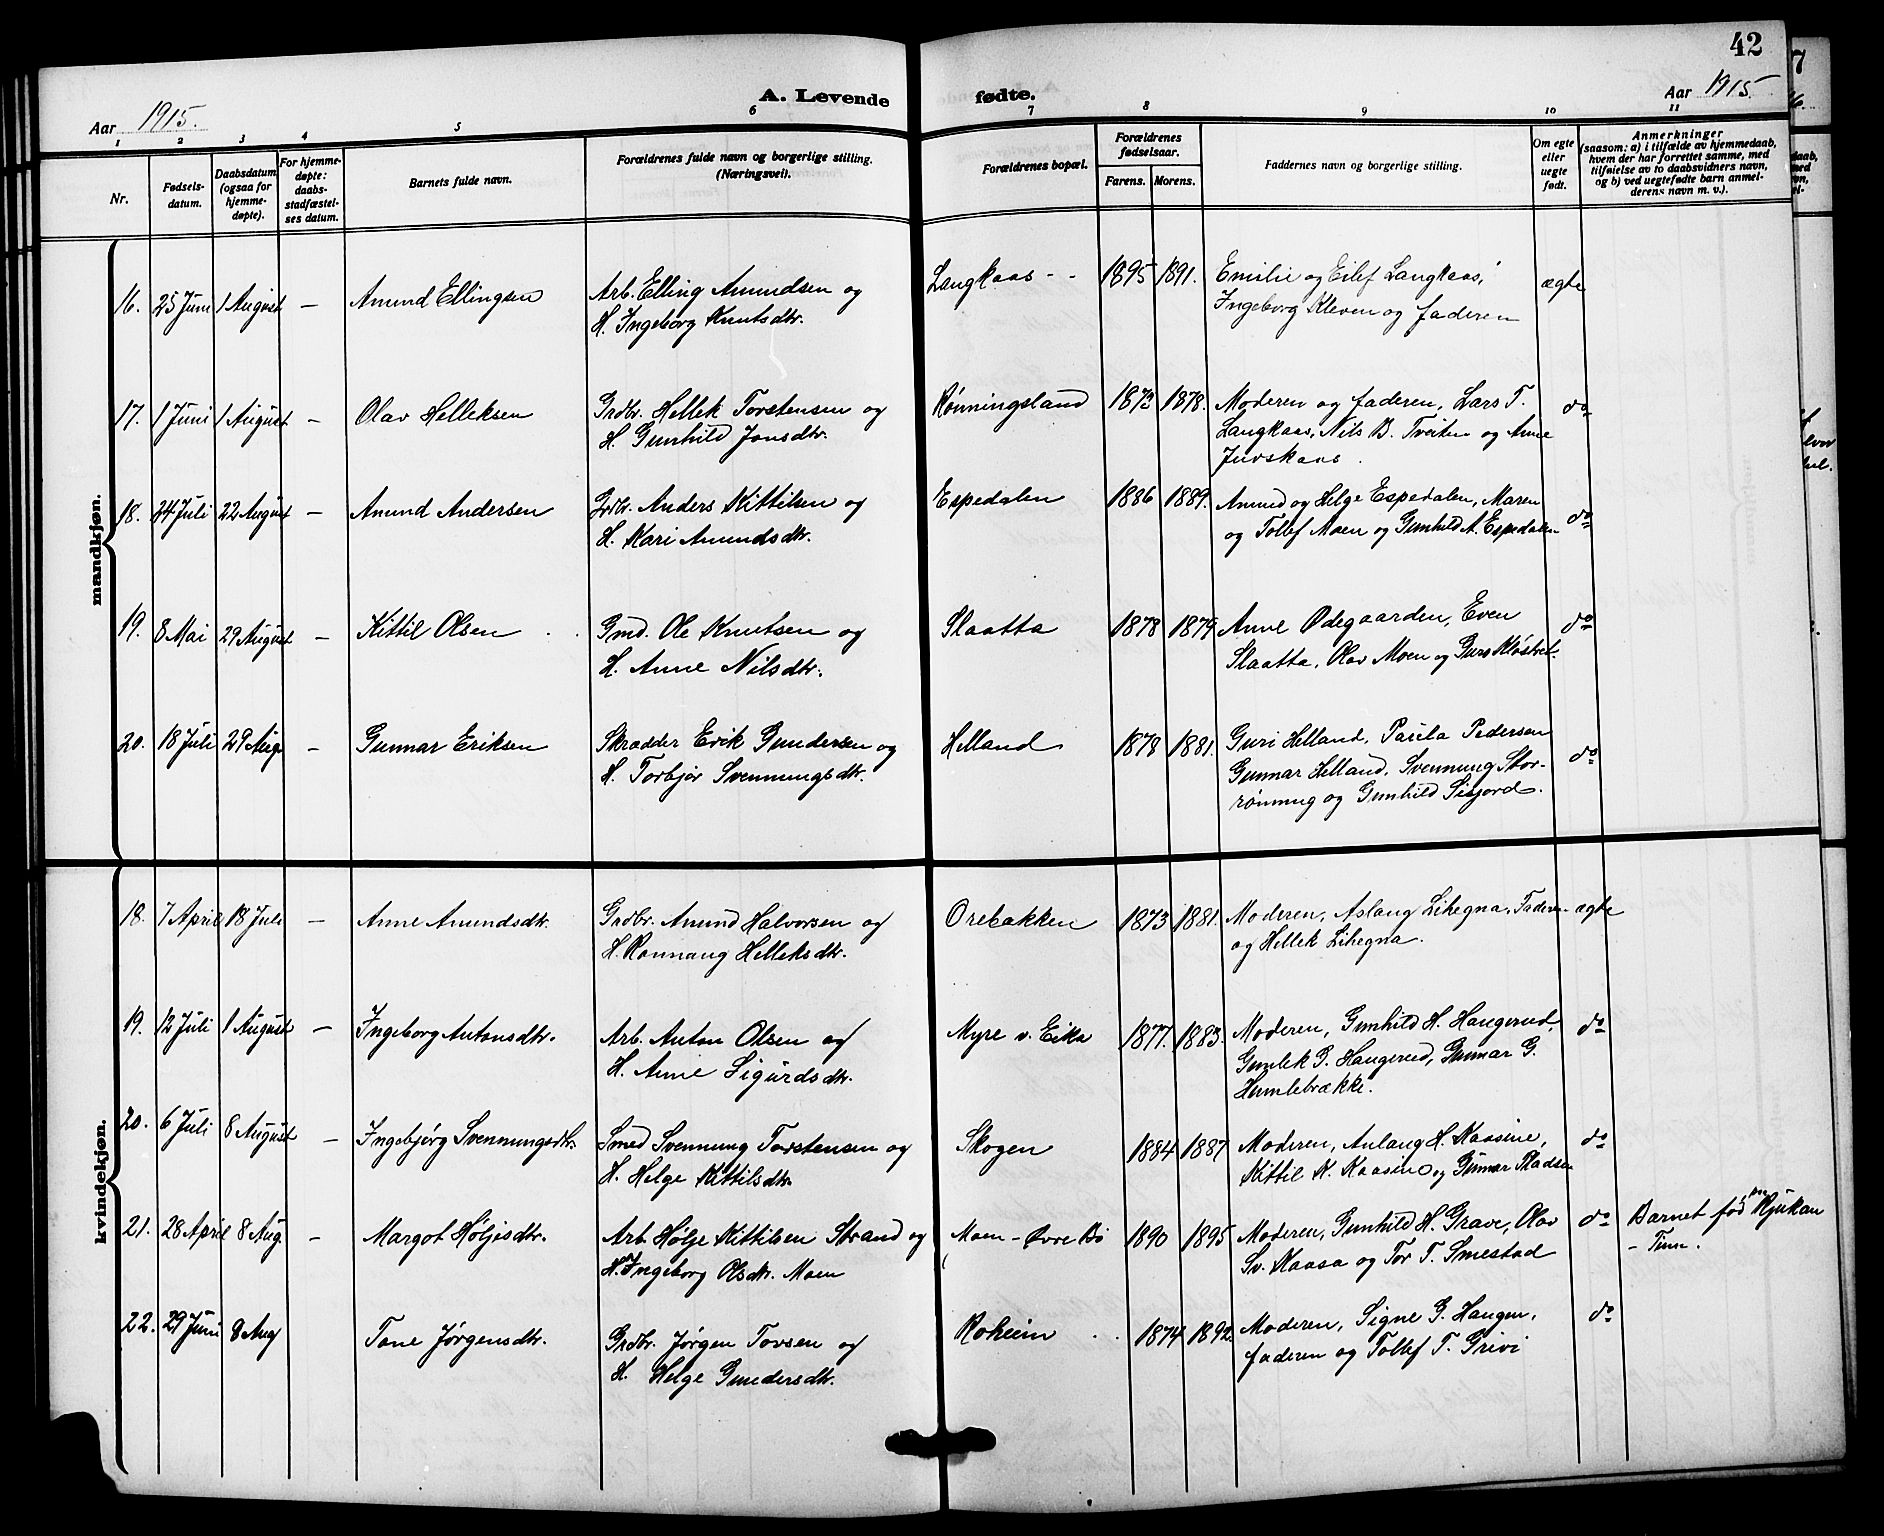 42
Aar 1915.
A. Levende fødte.
Aar 1915
1 2 3 4 5 6 7 8 9 10 11
Nr.
Fødsels-
datum.
Daabsdatum
(ogsaa for
hjemme-
døpte).
For hjemme-
døpte:
daabs-
stadfæstel-
ses datum.
Barnets fulde navn.
Forældrenes fulde navn og borgerlige stilling.
(Næringsvei).
Forældrenes bopæl.
Forældrenes
fødselsaar.
Farens. Morens.
Faddernes navn og borgerlige stilling.
Om egte
eller
uegte
født.
Anmerkninger
(saasom: a) i tilfælde av hjemmedaab,
hvem der har forrettet samme, med
tilføielse av to daabsvidners navn,
og b) ved uegtefødte barn anmel-
derens navn m. v.).
mandkjøn.
16. 25 Juni 1 August — Amund Ellingsen
Arb. Elling Amundsen og
H. Ingeborg Knutsdtr.
Langkaas - - 1895 1891.
Emilie og Eilef Langkaas,
Ingeborg Kleven og faderen
ægte
17. 1 Juni 1 August — Olav Helleksen
Grdbr. Hellek Torstensen og
H. Gunhild Jonsdtr.
Rønningsland 1873 1878.
Moderen og faderen, Lars T.
Langkaas, Nils B. Tveiten og Anne
Juvskaas.
do
18. 24 Juli 22 August — Amund Andersen
Grdbr. Anders Kittilsen og
H. Kari Amundsdtr.
Espedalen 1886 1889.
Amund og Helge Espedalen, Maren
og Tollef Moen og Gunhild A. Espedalen
do
19. 8 Mai 29 August — Kittil Olsen
Gmd. Ole Knutsen og
H. Anne Nilsdtr.
Slaatta 1878 1879
Anne Ødegaarden, Even
Slaatta, Olav Moen og Guro Kløstret.
do
20. 18 Juli 29 Aug. — Gunnar Eriksen
Skrædder Erik Gundersen og
H. Torbjør Svennungsdtr.
Helland 1878 1881.
Guri Helland, Paula Pedersen
Gunnar Helland, Svennung Skor-
rønning og Gunhild Sisjord.
do
kvindekjøn.
18. 7 April 18 Juli — Anne Amundsdtr.
Grdbr. Amund Halvorsen og
H. Rannaug Helleksdtr.
Orebakken 1873 1881.
Moderen, Aslaug Lihegna, Faderen
og Hellek Lihegna.
ægte
19. 12 Juli 1 August — Ingeborg Antonsdtr.
Arb. Anton Olsen og
H. Anne Sigurdsdtr.
Myre v. Eika 1877. 1883.
Moderen, Gunhild H. Haugerud,
Gunlek G. Haugerud, Gunnar G.
Humlebrække.
do
20. 6 Juli 8 August — Ingebjørg Svennungsdtr.
Smed Svennung Torstensen og
H. Helge Kittilsdtr.
Skogen 1884 1887
Moderen, Aslaug H. Kaasine,
Kittil K. Kaasin og Gunnar Pladsen
do
21. 28 April 8 Aug. — Margot Høljesdtr.
Arb. Hølje Kittilsen Strand og
H. Ingeborg Olsdtr. Moen
Moen - Øvre Bø 1890 1895
Moderen, Gunhild H. Grave, Olav
Sv. Kaasa og Tor T. Smestad
do
Barnet fød paa Rjukan
- Tinn.
22. 29 Juni 8 Aug Tone Jørgensdtr.
Grdbr. Jørgen Tovsen og
H. Helge Gundersdtr.
Roheim - - 1874 1892
Moderen, Signe G. Haugen,
faderen og Tollef T. Grivi
do